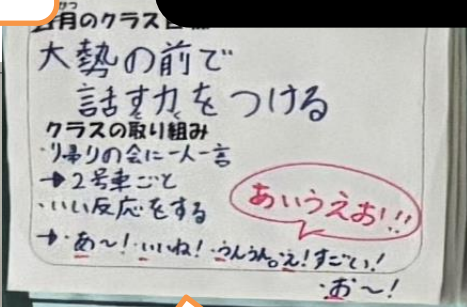 月のクラス目標
大勢の前で
話す力をつける
クラスの取り組み
・帰りの会に一人一言
→2号車ごと
・いい反応をする
あいうえお!!!
→・あ〜!・いいね!・うんうん。・え!すごい!
・お〜!